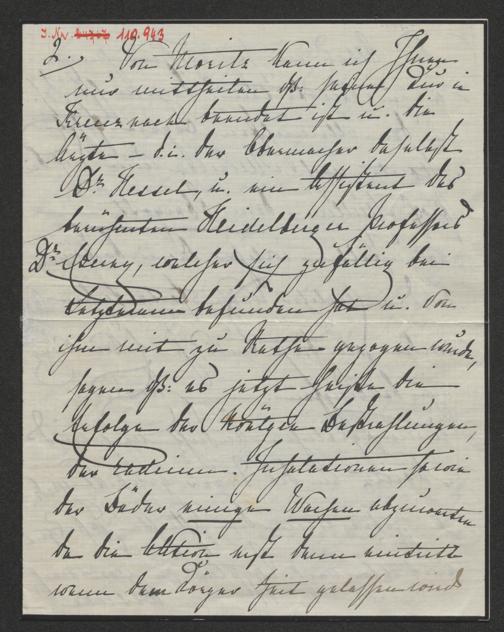 I.N. 119.943
2.) Von Moritz kann ich Ihnen
nur mittheilen dß: seine Cur in
Kreuznach beendet ist u. die
Ärzte – d.i. der daselbst
Dr Hessel, u. ein Assistent des
berühmten Heidelberger Professors
Dr Czerny, welcher sich zufällig bei
Letzterem befunden hat u. von
ihm mit zu Rathe gezogen wurde,
sagen dß: es jetzt heiße die
Erfolge der Röntgen Bestrahlungen,
der radium. Inhalationen sowie
der Bäder einige Wochen abzuwarten
da die Aktion erst dann eintritt
wenn dem Körper Zeit gelassen wird